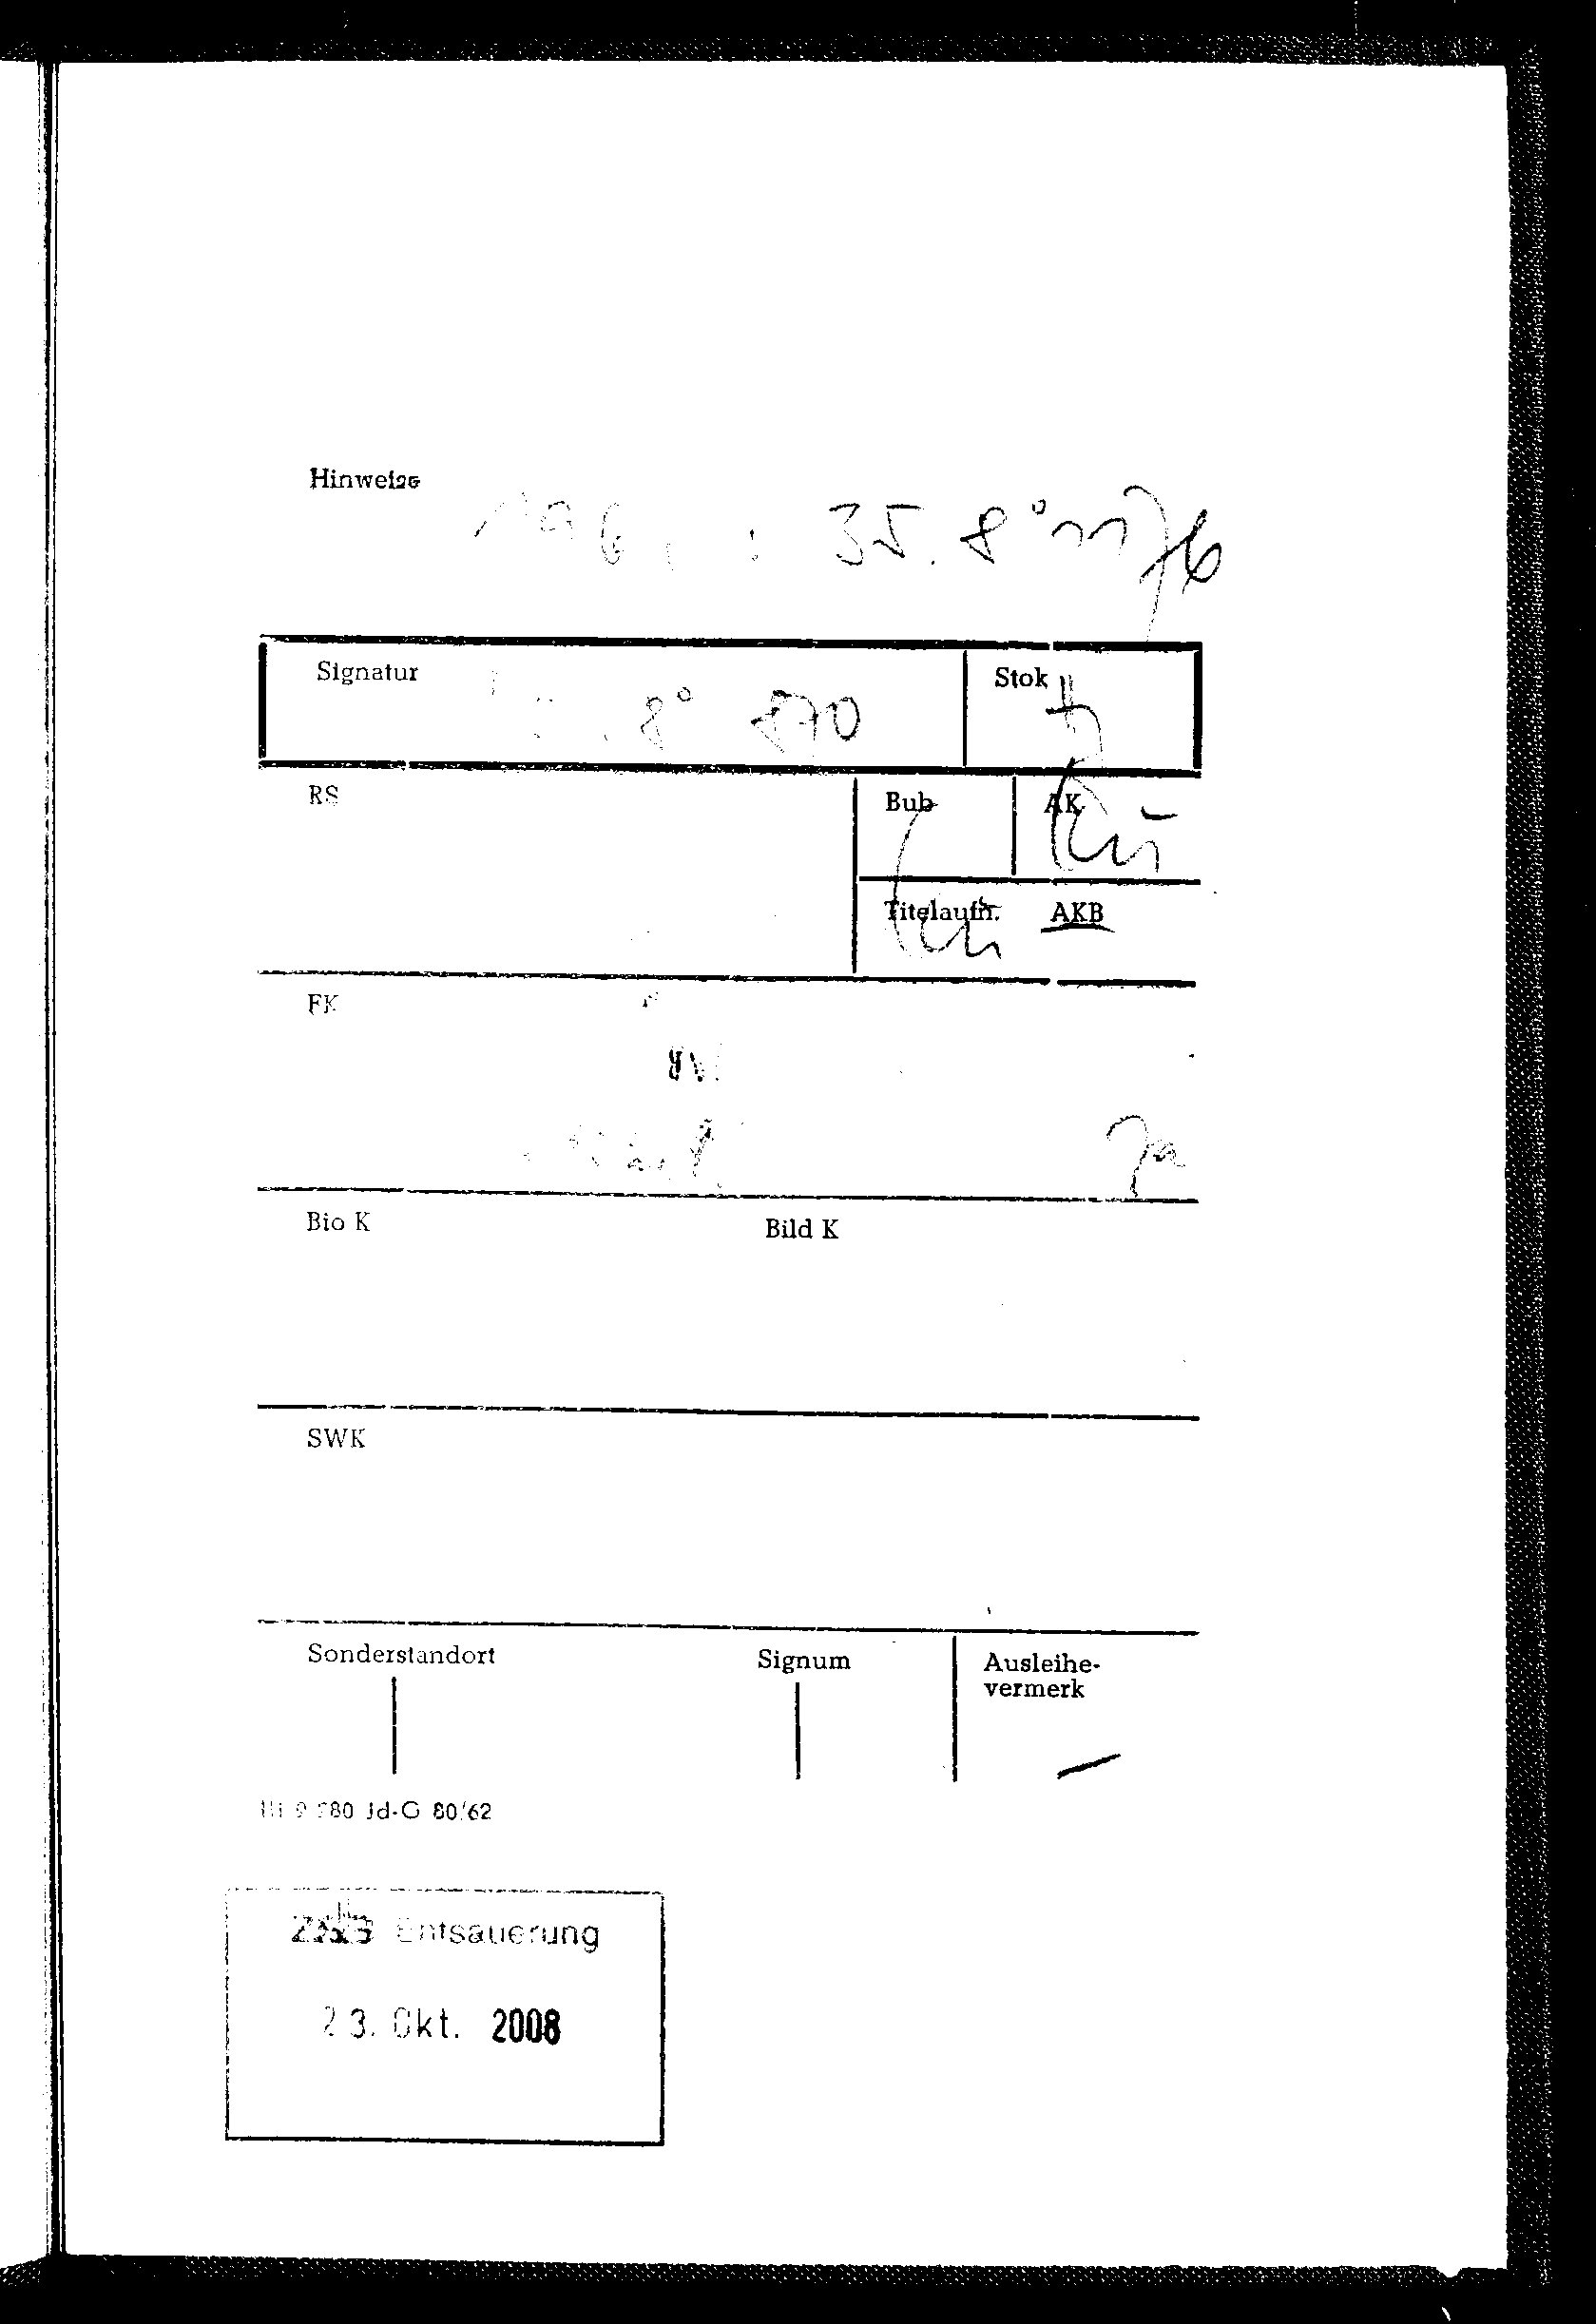 Hinweise
35. 8° 1176
Signatur
Stok
8° 870
RS
Bub
AK
Titelaufn.
AKB
FK
Ja
Bio K
Bild K
SWK
Sonderstandort
Signum
Ausleihe-
vermerk
80 Jd-G 80/62
Entsäuerung
23. Okt. 2008